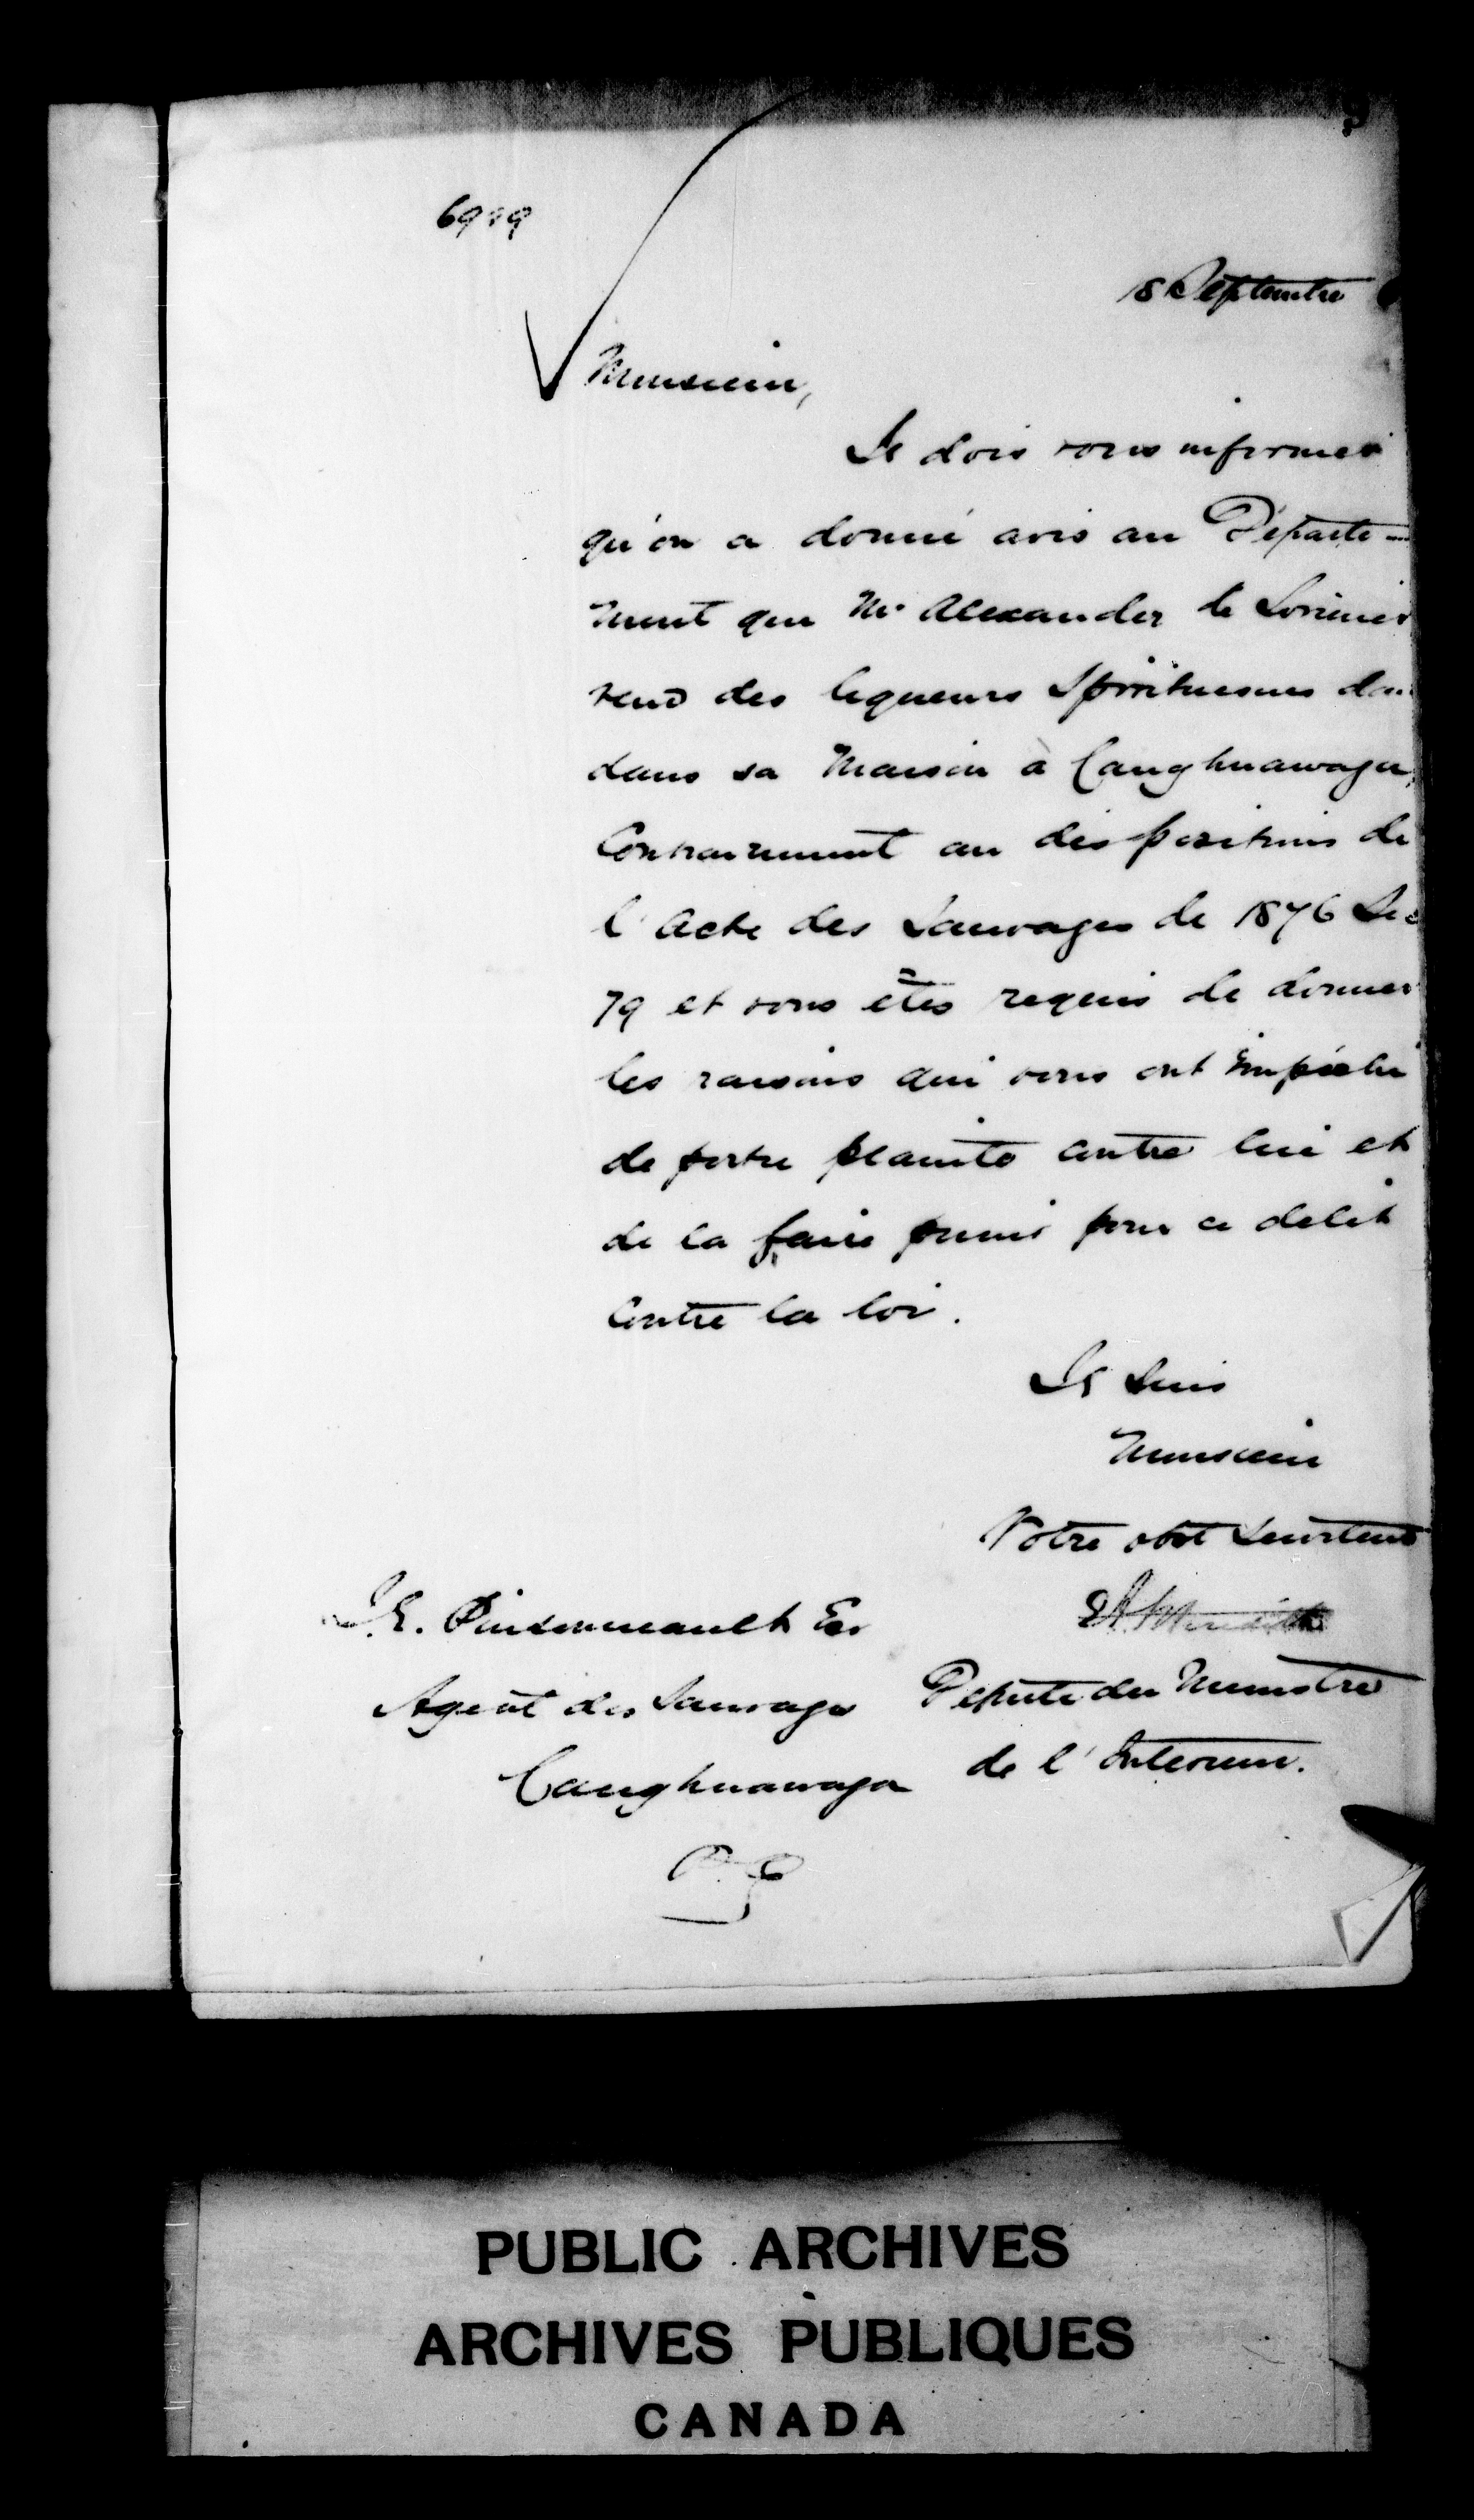 18 Septembre
Monsieur,
Je dois vous informer
qu'on a donné avis au Départe-
ment que Mr Alexander de Lorimier
vend des liqueurs Spiritueuses dan
dans sa Maison à Caughnawaga,
Contrairement au dispositions de
l'Acte des Sauvages de 1876 Sec
79 et vous êtes requis de donner
les raisons qui vous ont empêché
de porter plainte contre lui et
de la faire punir pour ce delit
contre la loi.
Je suis
Monsieur
Votre obt Serviteur
E A Meredith
J. E. Pinsonneault Esr
Agent des Sauvages
Caughnawaga
P. Q
Député du Ministre
de l'Interieur.
PUBLIC ARCHIVES
ARCHIVES PUBLIQUES
CANADA